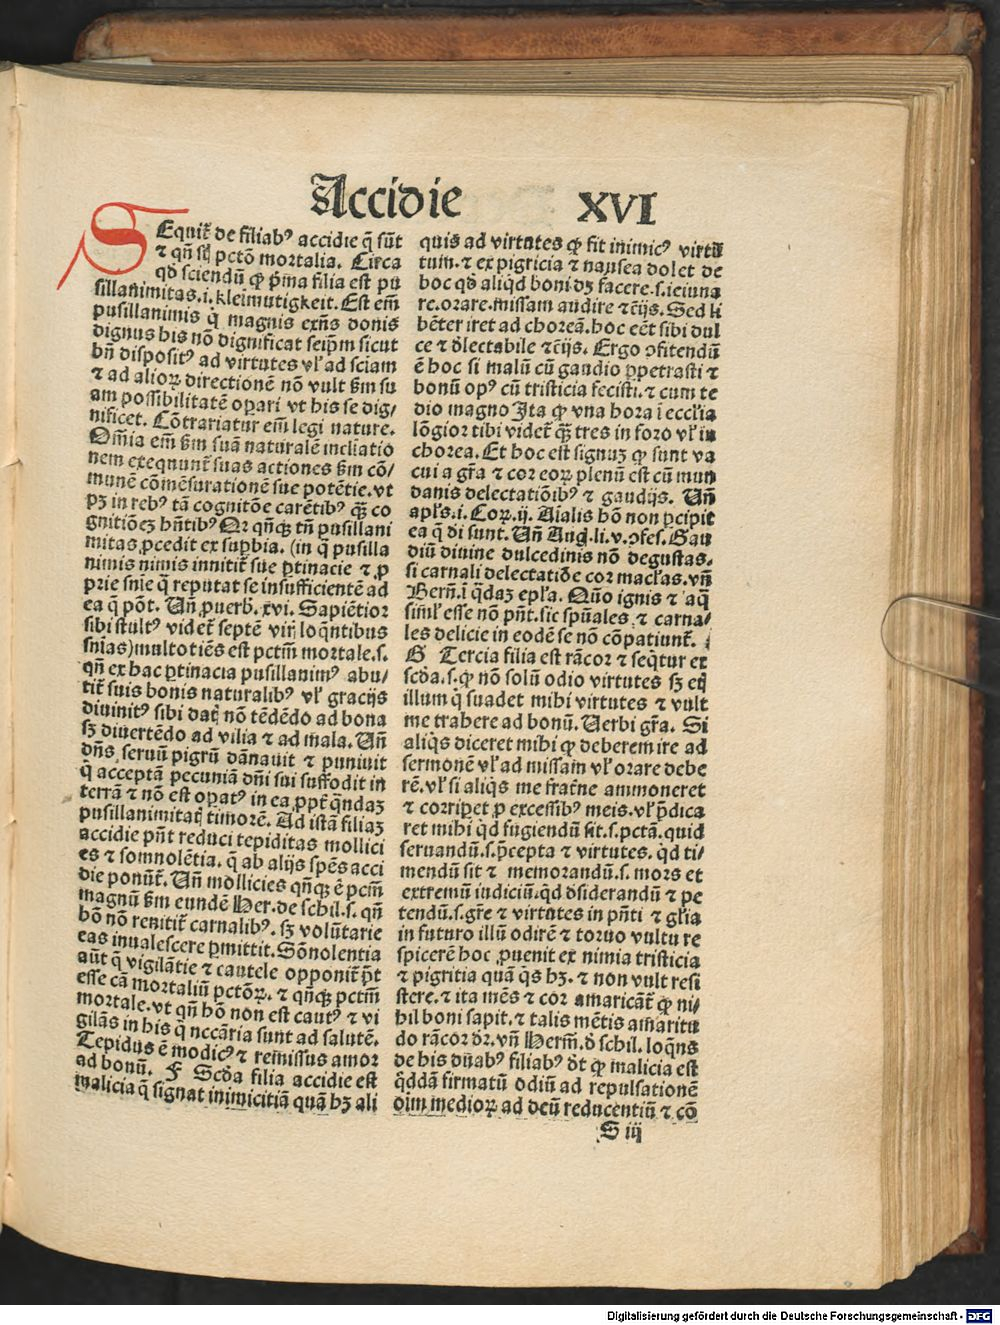 Accidie XVI
SEquit̃ de filiabꝰ accidie q̃ sũt
⁊ qñ sĩt pctõ mortalia. Circa
qḋ sciendũ ꝙ p̃ma filia est pu
sillanimitas.i.kleimutigkeit. Est em̃
pusillanimis q̇ magnis exñs donis
dignus his nõ dignificat seip̃m sicut
bñ dispositꝰ ad virtutes vl̕ ad sciam
⁊ ad alioꝝ directionẽ nõ vult ẞm su
am possibilitatẽ oꝑari vt his se dig/
nificet. Cõtrariatur em̃ legi nature.
Om̃ia em̃ ẞm suã naturalẽ incliatio
nem exequunt̃ suas actiones ẞm cõ/
munẽ cõmẽsurationẽ sue potẽtie.vt
pꝫ in rebꝰ tã cognitõe carẽtibꝰ q̃ꝫ co
gnitiõeꝫ hñtibꝰ Qꝛ qñqꝫ tñ pusillani
mitas ꝓcedit ex suꝑbia. (in q̃ pusilla
nimis nimis innitit̃ sue ꝑtinacie ⁊ ꝓ
prie snĩe q̃ reputat se insufficientẽ ad
ea q̃ põt. Uñ ꝓuerb̃. xvi. Sapiẽtior
sibi stultꝰ videt̃ septẽ viri loq̃ntibus
snĩas) multotiẽs est pctm̃ mortale.s.
qñ ex hac ꝑtinacia pusillanimꝰ abu/
tit̃ suis bonis naturalibꝰ vl̕ gracijs
diuinitꝰ sibi datꝭ nõ tẽdẽdo ad bona
sꝫ diuertẽdo ad vilia ⁊ ad mala. Uñ
dñs seruũ pigrũ dãnauit ⁊ puniuit
q̇ acceptã pecuniã dñi sui suffodit in
terrã ⁊ nõ est oꝑatꝰ in ea ꝓpt̃ q̃ndaꝫ
pusillanimitatꝭ timorẽ. Ad istã filiaꝫ
accidie pñt reduci tepiditas mollici
es ⁊ somnolẽtia. q̃ ab alijs spẽs acci
die ponũt̃. Uñ mollicies qñqꝫ ẽ pctm̃
magnũ ẞm eundẽ Her.de schil.s. qñ
hõ nõ renitit̃ carnalibꝰ. sꝫ volũtarie
eas inualescere ꝑmittit. Sõnolentia
aũt q̃ vigilãtie ⁊ cautele opponit̃ p̃t
esse cã mortaliũ pctõꝝ. ⁊ qñqꝫ pctm̃
mortale. vt qñ hõ non est cautꝰ ⁊ vi
gilãs in his q̃ nccãria sunt ad salutẽ.
Tepidus ẽ modicꝰ ⁊ remissus amor
ad bonũ. F Scḋa filia accidie est
malicia q̃ signat inimicitiã quã hꝫ ali
quis ad virtutes ꝙ fit inimicꝰ virtu
tum. ⁊ ex pigricia ⁊ nausea dolet de
hoc qḋ aliqḋ boni dꝫ facere.s.ieiuna
re.orare.missam audire ⁊c̃ijs. Sed li
bẽter iret ad choreã. hoc eẽt sibi dul
ce ⁊ ḋlectabile ⁊c̃ijs. Ergo ↄfitendũ
ẽ hoc si malũ cũ gaudio ꝑpetrasti ⁊
bonũ opꝰ cũ tristicia fecisti. ⁊ cum te
dio magno Ita ꝙ vna hora ĩ eccl̕ia
lõgior tibi videt̃ q̃ꝫ tres in foro vl̕ in
chorea. Et hoc est signuꝫ ꝙ sunt va
cui a gr̃a ⁊ cor eoꝝ plenũ est cũ mun
danis delectatiõibꝰ ⁊ gaudijs. Uñ
apl̕s.i.Coꝝ.ij. Aialis hõ non ꝑcipit
ea q̃ di sunt. Uñ Aug̃.li.v.ↄfes. Gau
diũ diuine dulcedinis nõ degustas.
si carnali delectatiõe cor macl̕as. vñ
Bern̄.ĩ q̃daꝫ epl̕a. Qũo ignis ⁊ aq̃
siml̕ esse nõ pñt. sic sp̃uales ⁊ carna/
les delicie in eodẽ se nõ cõpatiunt̃.
G Tercia filia est rãcor ⁊ seq̃tur ex
scḋa.s.ꝙ nõ solũ odio virtutes sꝫ eṫ
illum q̇ suadet mihi virtutes ⁊ vult
me trahere ad bonũ. Uerbi gr̃a. Si
aliq̇s diceret mihi ꝙ deberem ire ad
sermonẽ vl̕ ad missam vl̕ orare debe
rẽ. vl̕ si aliq̇s me frat̃ne ammoneret
⁊ corriꝑet ꝓ excessibꝰ meis. vl̕ p̃dica
ret mihi q̇d fugiendũ sit.s.pctã. quid
seruandũ.s.p̃cepta ⁊ virtutes. q̇d ti/
mendũ sit ⁊ memorandũ.s. mors et
extremũ iudiciũ.q̇d ḋsiderandũ ⁊ pe
tendũ.s.gr̃e ⁊ virtutes in pñti ⁊ gl̕ia
in futuro illũ odirẽ ⁊ toruo vultu re
spicerẽ hoc ꝓuenit ex nimia tristicia
⁊ pigritia quã q̇s hꝫ. ⁊ non vult resi
stere. ⁊ ita mẽs ⁊ cor amaricãt̃ ꝙ ni/
hil boni sapit. ⁊ talis mẽtis amaritu
do rãcor ḋr. vñ Herm̃.ḋ schil. loq̃ns
de his duabꝰ filiabꝰ ḋt ꝙ malicia est
q̃dã firmatũ odiũ ad repulsationẽ
oĩm medioꝝ ad deũ reducentiũ ⁊ cõ
S iij
Digitalisierung gefördert durch die Deutsche Forschungsgemeinschaft - DFG